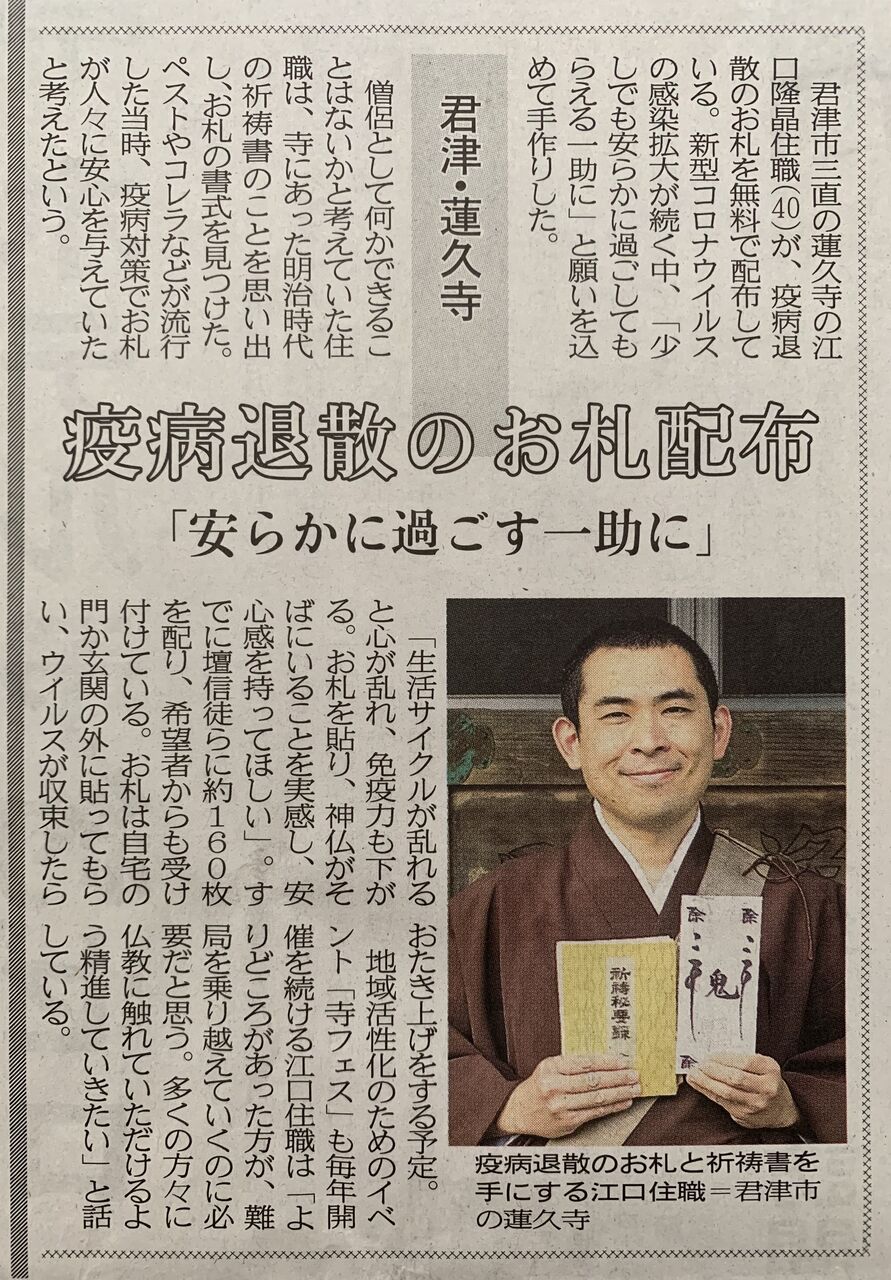 疫病退散のお札配布
「安らかに過ごす一助に」
君津・蓮久寺
君津市三直の蓮久寺の江
口隆晶住職(40)が、疫病退
散のお札を無料で配布して
いる。新型コロナウイルス
の感染拡大が続く中、「少
しでも安らかに過ごしても
らえる一助に」と願いを込
めて手作りした。
僧侶として何かできるこ
とはないかと考えていた住
職は、寺にあった明治時代
の祈祷書のことを思い出
し、お札の書式を見つけた。
ペストやコレラなどが流行
した当時、疫病対策でお札
が人々に安心を与えていた
と考えたという。
「生活サイクルが乱れる
と心が乱れ、免疫力も下が
る。お札を貼り、神仏がそ
ばにいることを実感し、安
心感を持ってほしい」。す
でに壇信徒らに約160枚
を配り、希望者からも受け
付けている。お札は自宅の
門か玄関の外に貼ってもら
い、ウイルスが収束したら
おたき上げをする予定。
地域活性化のためのイベ
ント「寺フェス」も毎年開
催を続ける江口住職は「よ
りどころがあった方が、難
局を乗り越えていくのに必
要だと思う。多くの方々に
仏教に触れていただけるよ
う精進していきたい」と話
している。
祈祷秘要録
鬼
疫病退散のお札と祈祷書を
手にする江口住職＝君津市
の蓮久寺